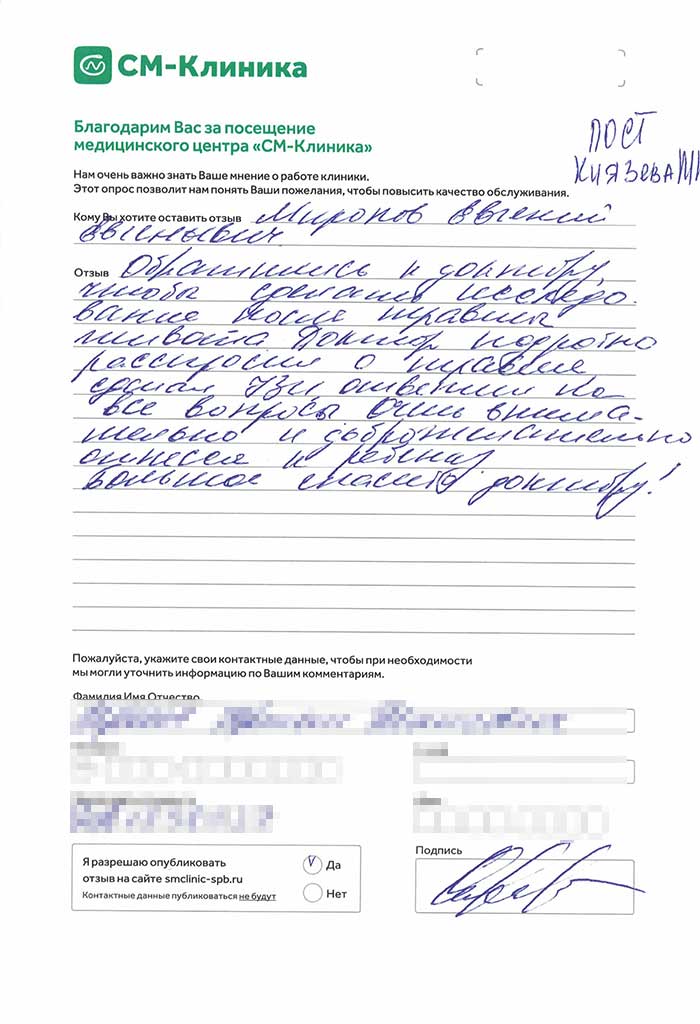 СМ-Клиника
Благодарим Вас за посещение
медицинского центра «СМ-Клиника»
ПОСТ
КНЯЗЕВА
Нам очень важно знать Ваше мнение о работе клиники.
Этот опрос позволит нам понять Ваши пожелания, чтобы повысить качество обслуживания.
Кому Вы хотите оставить отзыв Миронов Евгений
Евгеньевич
Отзыв Обратились к доктору,
чтобы сделать исследо-
вание после травмы
живота Доктор подробно
расспросил о травме
сделал УЗИ ответил на
все вопросы Очень внима-
тельно и доброжелательно
отнесся к ребенку
Большое спасибо доктору!
Пожалуйста, укажите свои контактные данные, чтобы при необходимости
мы могли уточнить информацию по Вашим комментариям.
Фамилия Имя Отчество
Я разрешаю опубликовать
отзыв на сайте smclinic-spb.ru
Контактные данные публиковаться не будут
V Да
Нет
Подпись